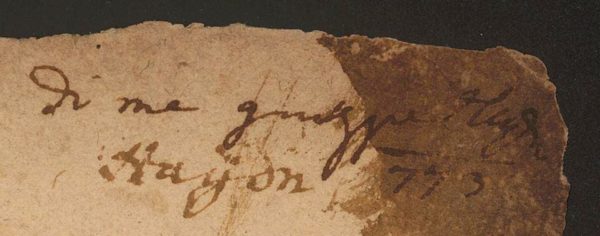 Di me giuseppe Haydn
Haÿdn 773